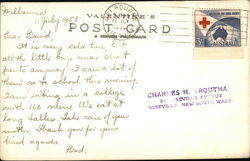 Melbourne
11 July 1958
VALENTINE'S
POST CARD
Dear David,
It is very cold here, but
all the little boys wear short
pants anyway. I saw a lot of
them on to school this morning.
I am sitting in a college
with 160 others. We eat at
long tables. Take care of your
mother. Thank you for your
kind regards.
Dad.
CHARLES H. TROUTMAN
ROSEVILLE AVENUE
ROSEVILLE NEW SOUTH WALES